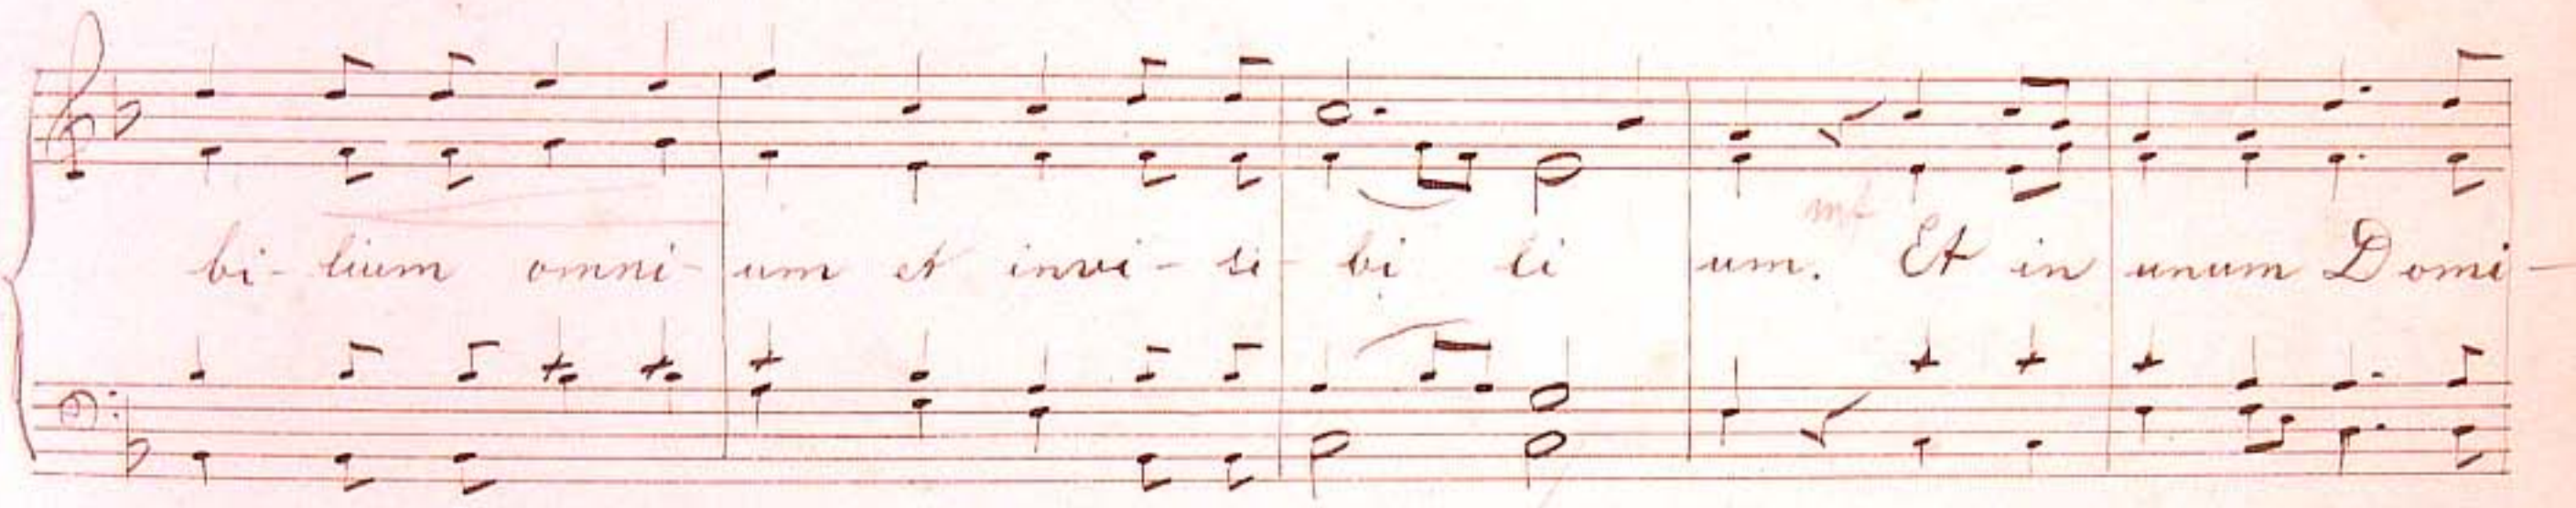 mf
bi- lium omni- um et invi- si- bi li um. Et in unum Domi-